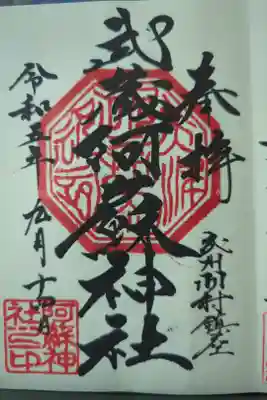 奉拝
武州羽村鎮座
武蔵阿蘇神社
令和五年九月十四日
阿蘇神
社之印